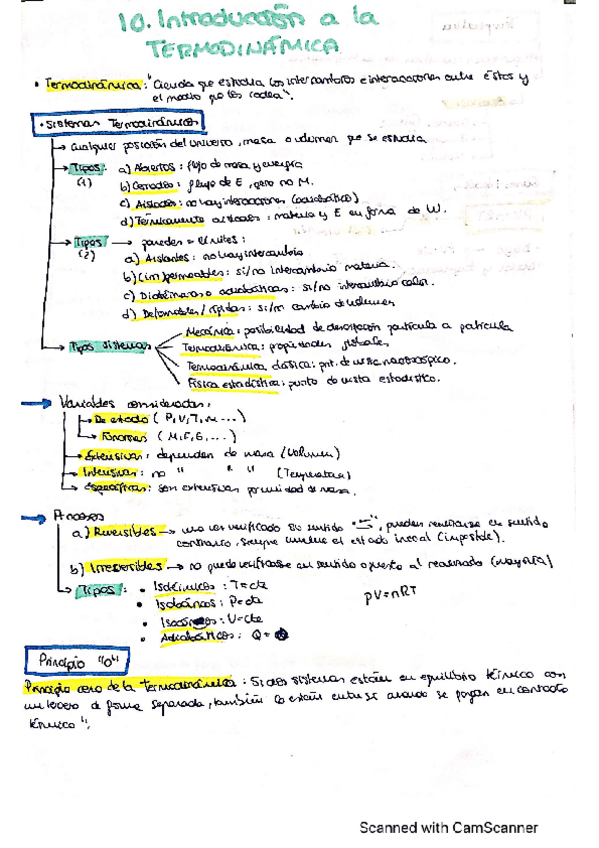 10. Introducción a la
TERMODINÁMICA
• Termodinámica: "Ciencia que estudia los intercambios e interacciones entre éstos y
el medio que los rodea".
• Sistemas Termodinámicos
→ Cualquier posición del universo, masa o volumen que se estudia
→ Tipos: a) Abiertos: flujo de masa y energía
(1) b) Cerrados: flujo de E, pero no M.
c) Aislados: no hay interacciones (adiabático)
d) Térmicamente aislados: materia y E en forma de W.
→ Tipos → paredes = límites:
(2) a) Aislantes: no hay intercambio
b) (im)permeables: si/no intercambio materia.
c) Diatérmanas o adiabáticas: si/no intercambio calor.
d) Deformables/rígidas: si/no cambio de volumen
→ Tipos sistemas
Mecánica: posibilidad de descripción partícula a partícula
Termodinámica: propiedades globales
Termodinámica clásica: pnt. de vista macroscópico.
Física estadística: punto de vista estadístico.
→ Variables consideradas:
→ De estado (P, V, T, n, ...)
→ Funciones (M, F, G, ...)
→ Extensivas: dependen de masa (Volumen)
→ Intensivas: no " " " (Temperatura)
→ Específicas: son extensivas por unidad de masa.
→ Procesos
a) Reversibles → una vez verificado en sentido "⇆", pueden realizarse en sentido
contrario, siempre vuelve el estado inicial (imposible).
b) Irreversibles → no puede verificarse en sentido opuesto al realizado (mayoría)
→ Tipos: • Isotérmicos: T=cte
• Isobáricos: P=cte
PV=nRT
• Isocóricos: V=cte
• Adiabáticos: Q=0
Principio "0"
Principio cero de la termodinámica: Si dos sistemas están en equilibrio térmico con
un tercero de forma separada, también lo están entre sí cuando se pongan en contacto
térmico".
Scanned with CamScanner